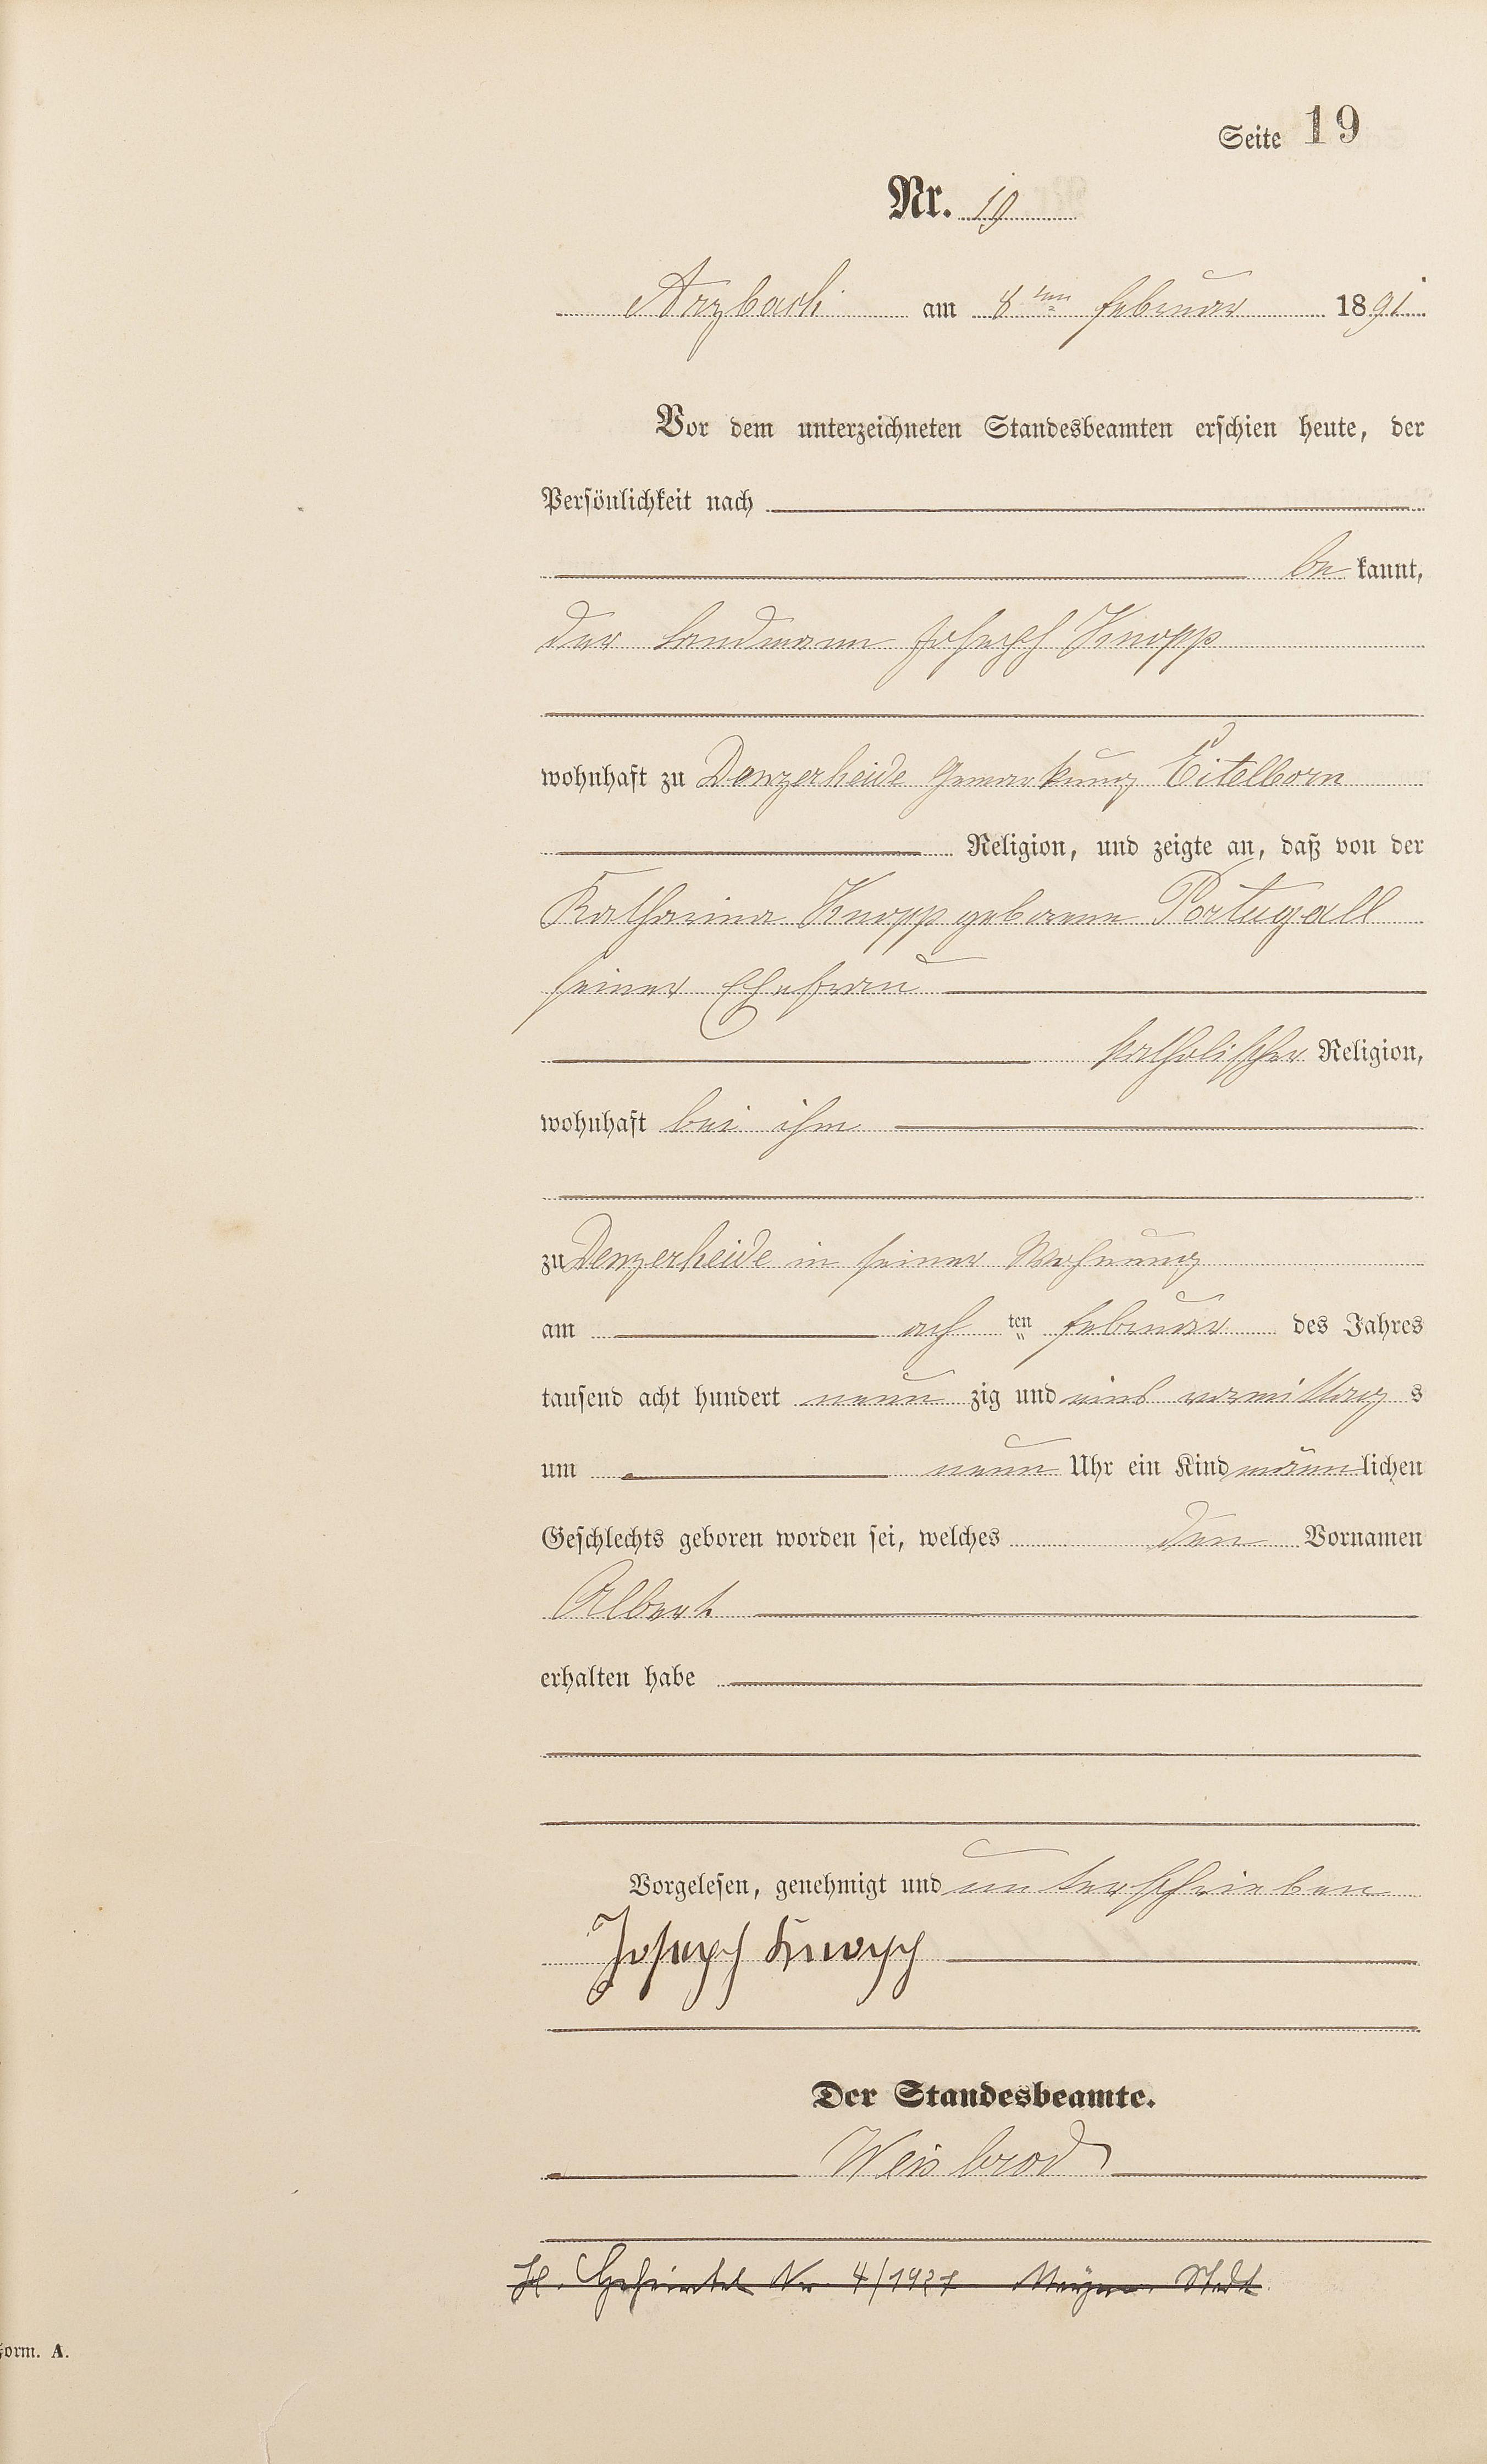 Seite 19
Nr. 19
Arzbach am 8ten Februar 1891
Vor dem unterzeichneten Standesbeamten erschien heute, der
Persönlichkeit nach
be kannt,
der Landmann Joseph Knopp
wohnhaft zu Denzerheide Gemarkung Eitelborn
Religion, und zeigte an, daß von der
Katharina Knopp geborene Portugall
seiner Ehefrau
katholischer Religion,
wohnhaft bei ihm
zu Denzerheide in seiner Wohnung
am ach ten Februar des Jahres
tausend acht hundert neun zig und eins vormittag s
um neun Uhr ein Kind männ lichen
Geschlechts geboren worden sei, welches den Vornamen
Albert
erhalten habe
Vorgelesen, genehmigt und unterschrieben
Joseph Knopp
Der Standesbeamte.
Weisbrod
Nr 4/1927
Form. A.